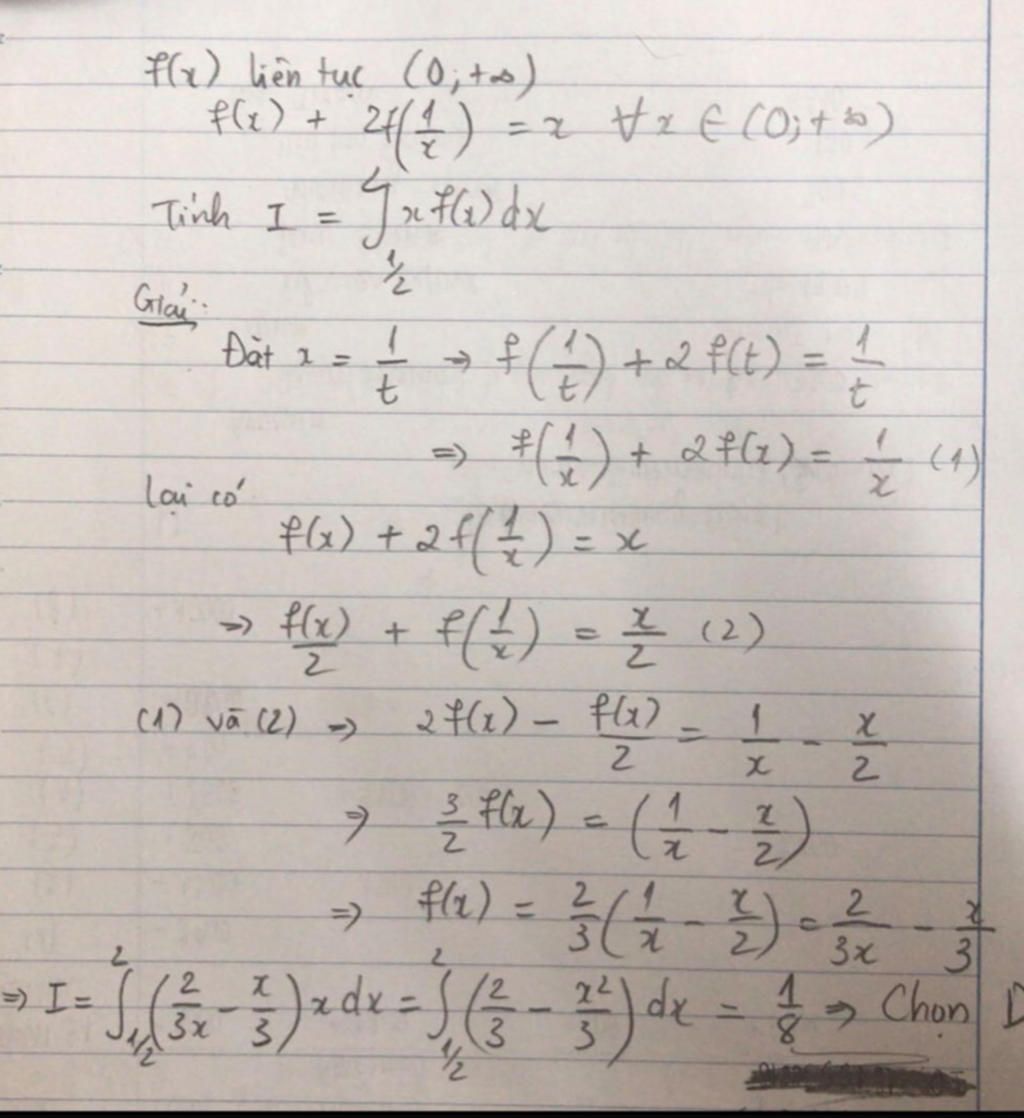 f(x) liên tục (0;+∞)
f(x) + 2f(1/x) = x ∀x ∈ (0;+∞)
Tính I = ∫_{1/2} x f(x) dx
Giải:
Đặt x = 1/t → f(1/t) + 2f(t) = 1/t
⇒ f(1/x) + 2f(x) = 1/x (1)
lại có
f(x) + 2f(1/x) = x
→ f(x)/2 + f(1/x) = x/2 (2)
(1) và (2) → 2f(x) - f(x)/2 = 1/x - x/2
⇒ 3/2 f(x) = (1/x - x/2)
⇒ f(x) = 2/3 (1/x - x/2) = 2/3x - x/3
⇒ I = ∫_{1/2}^{2} (2/3x - x/3) x dx = ∫_{1/2}^{2} (2/3 - x²/3) dx = 1/8 → Chọn D